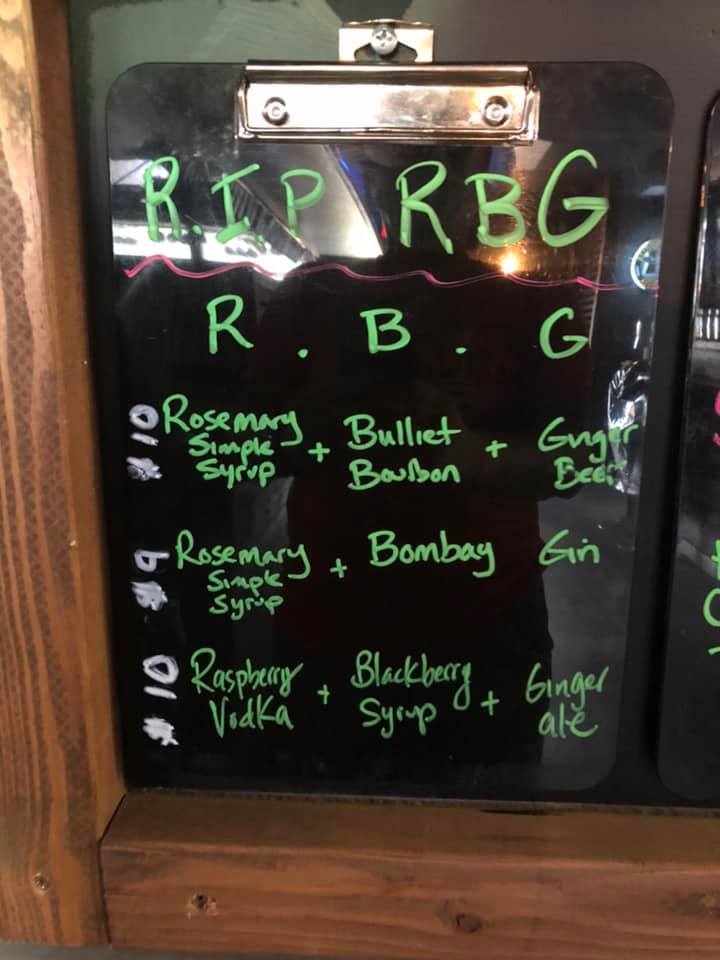 R.I.P RBG
R . B . G
$10 Rosemary Simple Syrup + Bulliet Bourbon + Ginger Beer
$9 Rosemary Simple Syrup + Bombay Gin
$10 Raspberry Vodka + Blackberry Syrup + Ginger ale